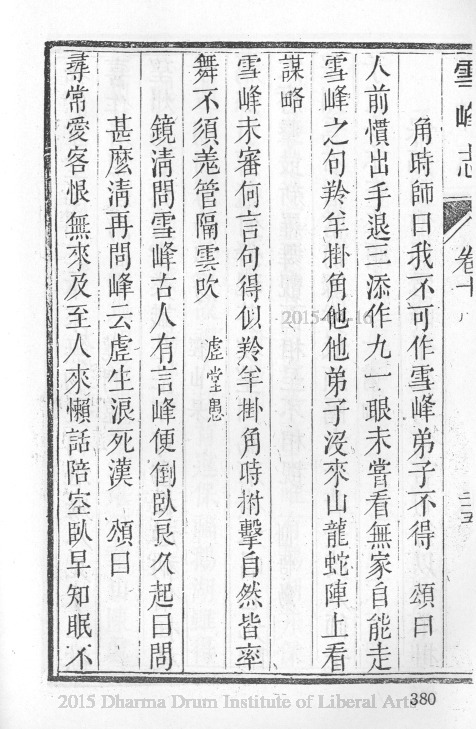 雪峰志
卷十
三五
角時師曰我不可作雪峰弟子不得　頌曰
人前慣出手退三添作九一眼未嘗看無家自能走
雪峰之句羚羊掛角他他弟子沒來山龍蛇陣上看
謀略
雪峰未審何言句得似羚羊掛角時拊擊自然皆率
舞不須羗管隔雲吹　虛堂愚
鏡清問雪峰古人有言峰便倒臥良久起曰問
甚麼清再問峰云虛生浪死漢　頌曰
尋常愛客恨無來及至人來懶話陪空臥早知眠不
2015
2015 Dharma Drum Institute of Liberal Arts
380